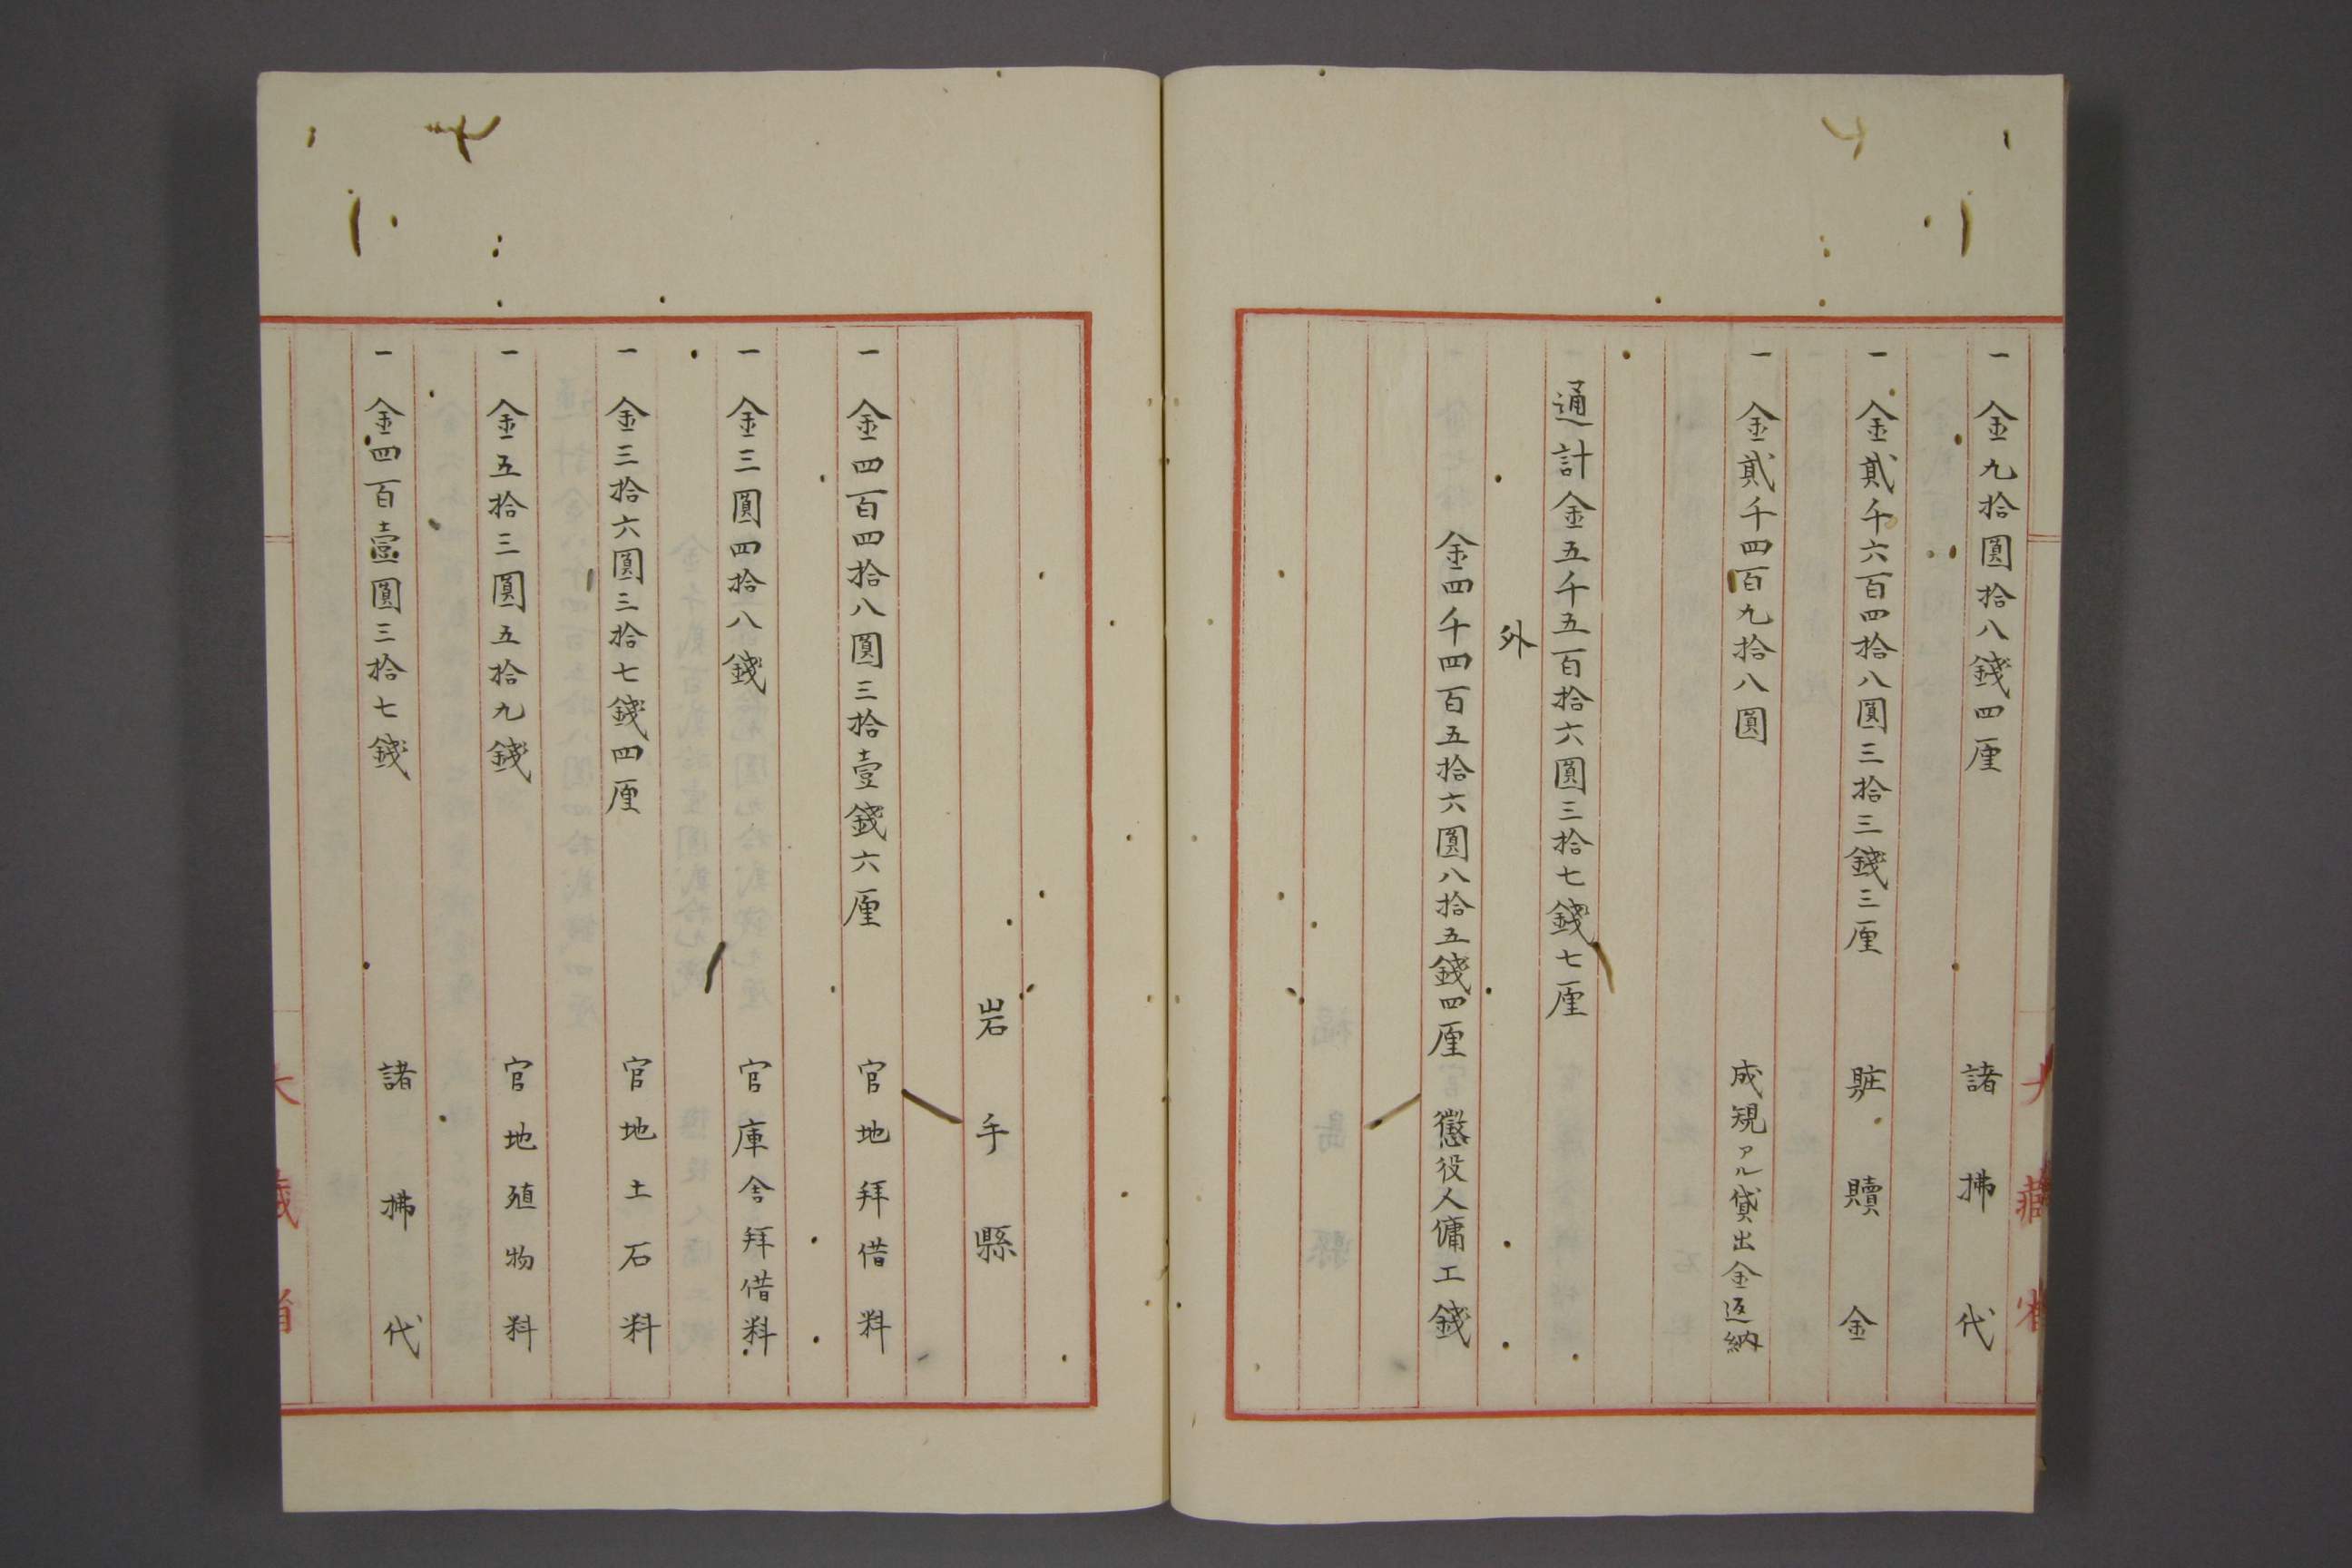 一 金九拾圓拾八錢四厘 諸拂代
一 金貳千六百四拾八圓三拾三錢三厘 賍贖金
一 金貳千四百九拾八圓 成規アル貸出金返納
通計金五千五百拾六圓三拾七錢七厘
外
金四千四百五拾六圓八拾五錢四厘 懲役人傭工錢
岩手縣
一 金四百四拾八圓三拾壹錢六厘 官地拜借料
一 金三圓四拾八錢 官庫舎拜借料
一 金三拾六圓三拾七錢四厘 官地土石料
一 金五拾三圓五拾九錢 官地殖物料
一 金四百壹圓三拾七錢 諸拂代